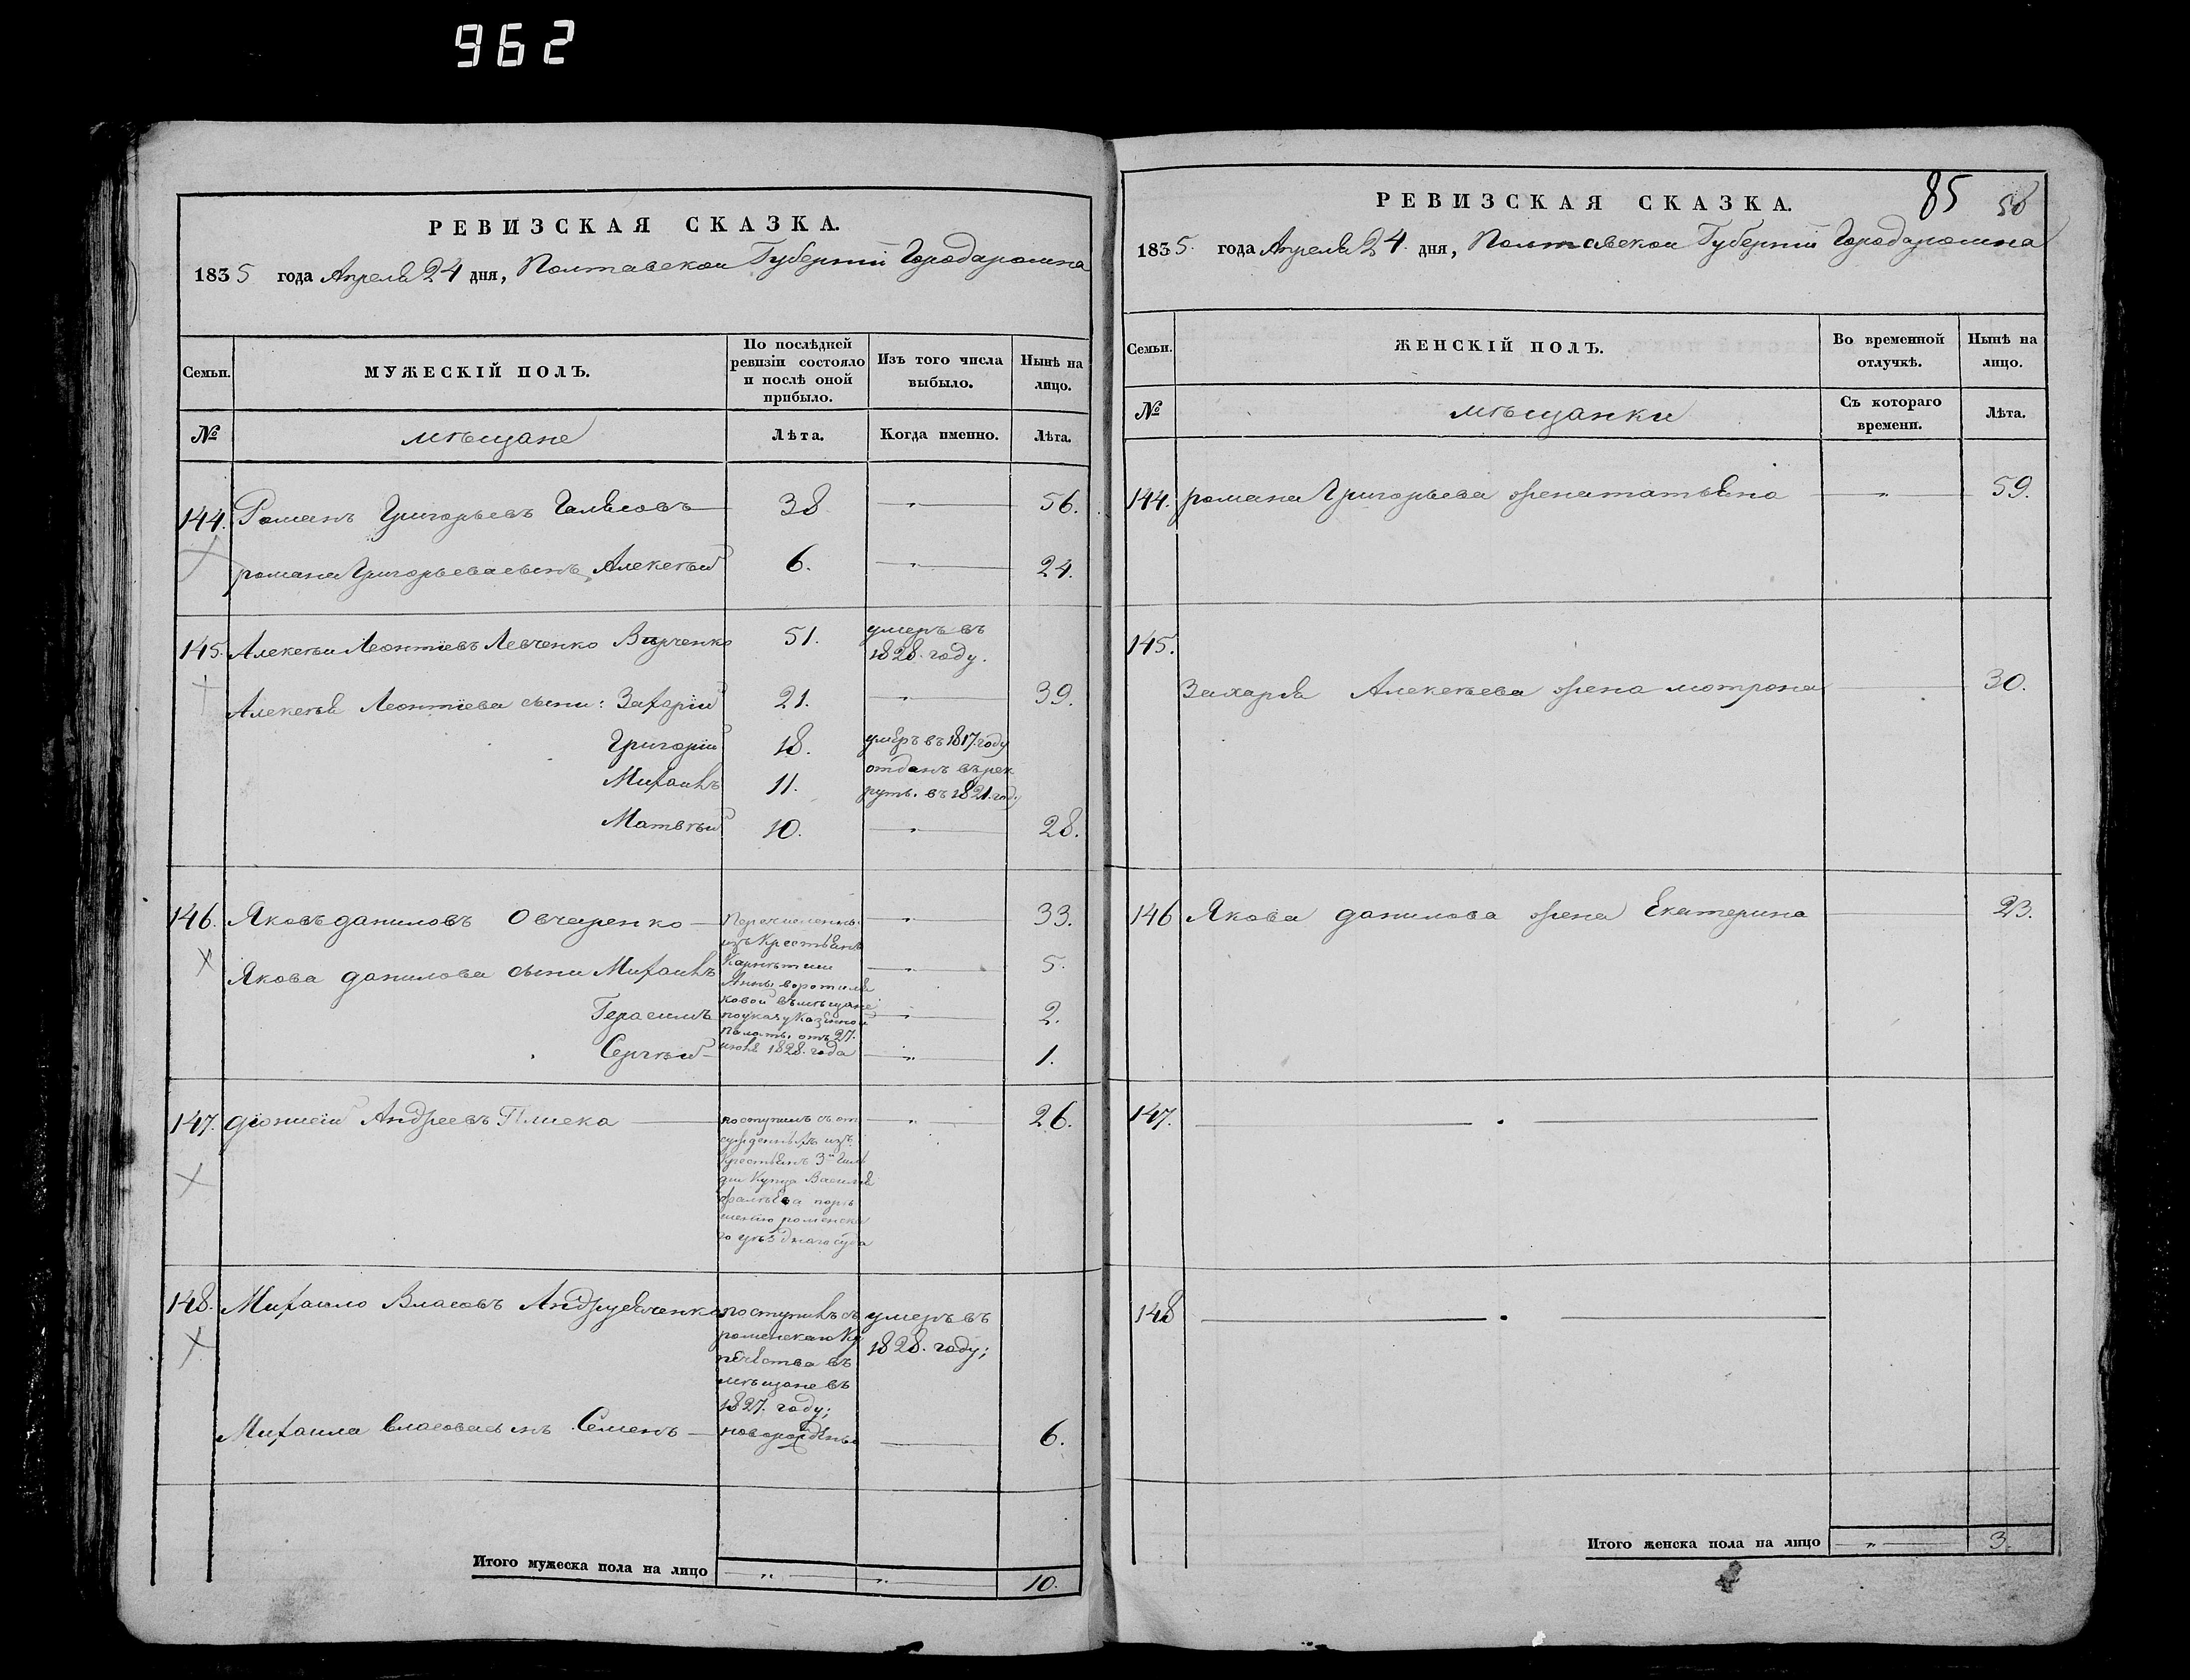 962
РЕВИЗСКАЯ СКАЗКА.
1835 года Апреля 24 дня, Полтавской Губернии Города ромна
Семьи.
МУЖЕСКІЙ ПОЛЪ.
По послѣдней
ревизіи состояло
и послѣ оной
прибыло.
Изъ того числа
выбыло.
Нынѣ на
лицо.
№
мѣщане
Лѣта.
Когда именно.
Лѣта.
144. Романъ Григорьевъ 38 „ 56.
романа Григорьева сынъ, Алексѣй 6. „ 24.
145. Алексѣй Леонтіевъ Левченко 51. умеръ въ
1828. году.
Алексѣя Леонтіева сыни: Захарій 21. „ 39.
Григорій 18. умеръ въ 1817. году
Михаилъ 11. отданъ въ рек
руты. въ 1821. году
Матвѣй 10. „ 28.
146. Яковъ даниловъ Овчаренко Перечисленны
изъ Крестьянъ
„ 33.
Якова данилова сыни Михаилъ „ 5.
Анны воротиля
ковой въ мѣщане
Герасимъ по указу Казенной „ 2.
Палаты. отъ 27.
Сергѣй іюня 1828. года „ 1.
147. діонисій Андреевъ Плиска поступилъ съ от „ 26.
сужденныхъ изъ
Крестьянъ 3й Гиль
діи Купца Василія
по рѣ
шенію роменска
го уѣзднаго суда
148. Михаило Власовъ поступилъ съ умеръ въ
роменскаго Ку 1828. году;
печества въ
мѣщане въ
1827. году;
Михаила власова сынъ Семенъ новорожденъ 6.
Итого мужеска пола на лицо „ „ 10.
85 58
РЕВИЗСКАЯ СКАЗКА.
1835. года Апреля 24. дня, Полтавской Губернии Города ромна
Семьи.
ЖЕНСКІЙ ПОЛЪ.
Во временной
отлучкѣ.
Нынѣ на
лицо.
№
мѣщанки
Съ котораго
времени.
Лѣта.
144. романа Григорьева жена татьяна „ 59.
145.
Захарія Алексѣева жена мотрона 30.
146 Якова данилова жена Екатерина 23.
147.
148
Итого женска пола на лицо „ 3.